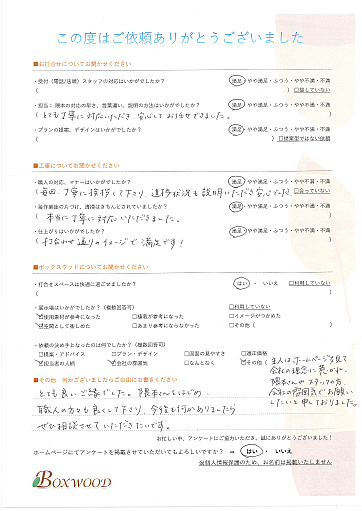 この度はご依頼ありがとうございました
■お打合せについてお聞かせください
・受付（電話/店頭）スタッフの対応はいかがでしたか？ 満足・やや満足・ふつう・やや不満・不満
( ) □話していない
・担当：隈本の対応の早さ、言葉遣い、説明の方法はいかがでしたか？ 満足・やや満足・ふつう・やや不満・不満
( とても丁寧に対応いただき、安心してお任せできました。 )
・プランの提案、デザインはいかがでしたか？ 満足・やや満足・ふつう・やや不満・不満
( ) □提案型ではない依頼
■工事についてお聞かせください
・職人の対応、マナーはいかがでしたか？ 満足・やや満足・ふつう・やや不満・不満
( 毎回丁寧に挨拶して下さり、進捗状況も説明いただき安心でした ) □会っていない
・毎作業後の片づけ、清掃はきちんとされていましたか？ 満足・やや満足・ふつう・やや不満・不満
( 本当に丁寧に対応いただきました。 )
・仕上がりはいかがでしたか？ 満足・やや満足・ふつう・やや不満・不満
( 打合わせ通りのイメージで満足です！ )
■ボックスウッドについてお聞かせください
・打合せスペースは快適に過ごせましたか？ はい・いいえ □利用していない
( )
・展示場はいかがでしたか？（複数回答可） □利用していない
☑使用素材が参考になった □積載が参考になった □イメージがつかめた
☑空間として楽しめた □あまり参考にならなかった □その他（ ）
・依頼の決め手となったのは何でしたか？（複数回答可）
□提案・アドバイス □プラン・デザイン □図面の見やすさ □適正価格
☑担当者の人柄 ☑会社の雰囲気 □なんとなく ☑その他（
主人はホームページを見て
会社の理念に惹かれ、
隈本さんやスタッフの方、
会社の雰囲気でお願い
したいと申しておりました。）
■その他 何かございましたらご自由にお書きください
とても良いご縁でした。隈本さんをはじめ、
職人の方々も良くして下さり、今後も何かありましたら
ぜひ相談させていただきたいです。
お忙しい中、アンケートにご協力いただき、誠にありがとうございました！
ホームページにてアンケートを掲載させていただいてもよろしいですか？ ⇒ はい・いいえ
※個人情報保護のため、お名前は掲載いたしません
BOXWOOD